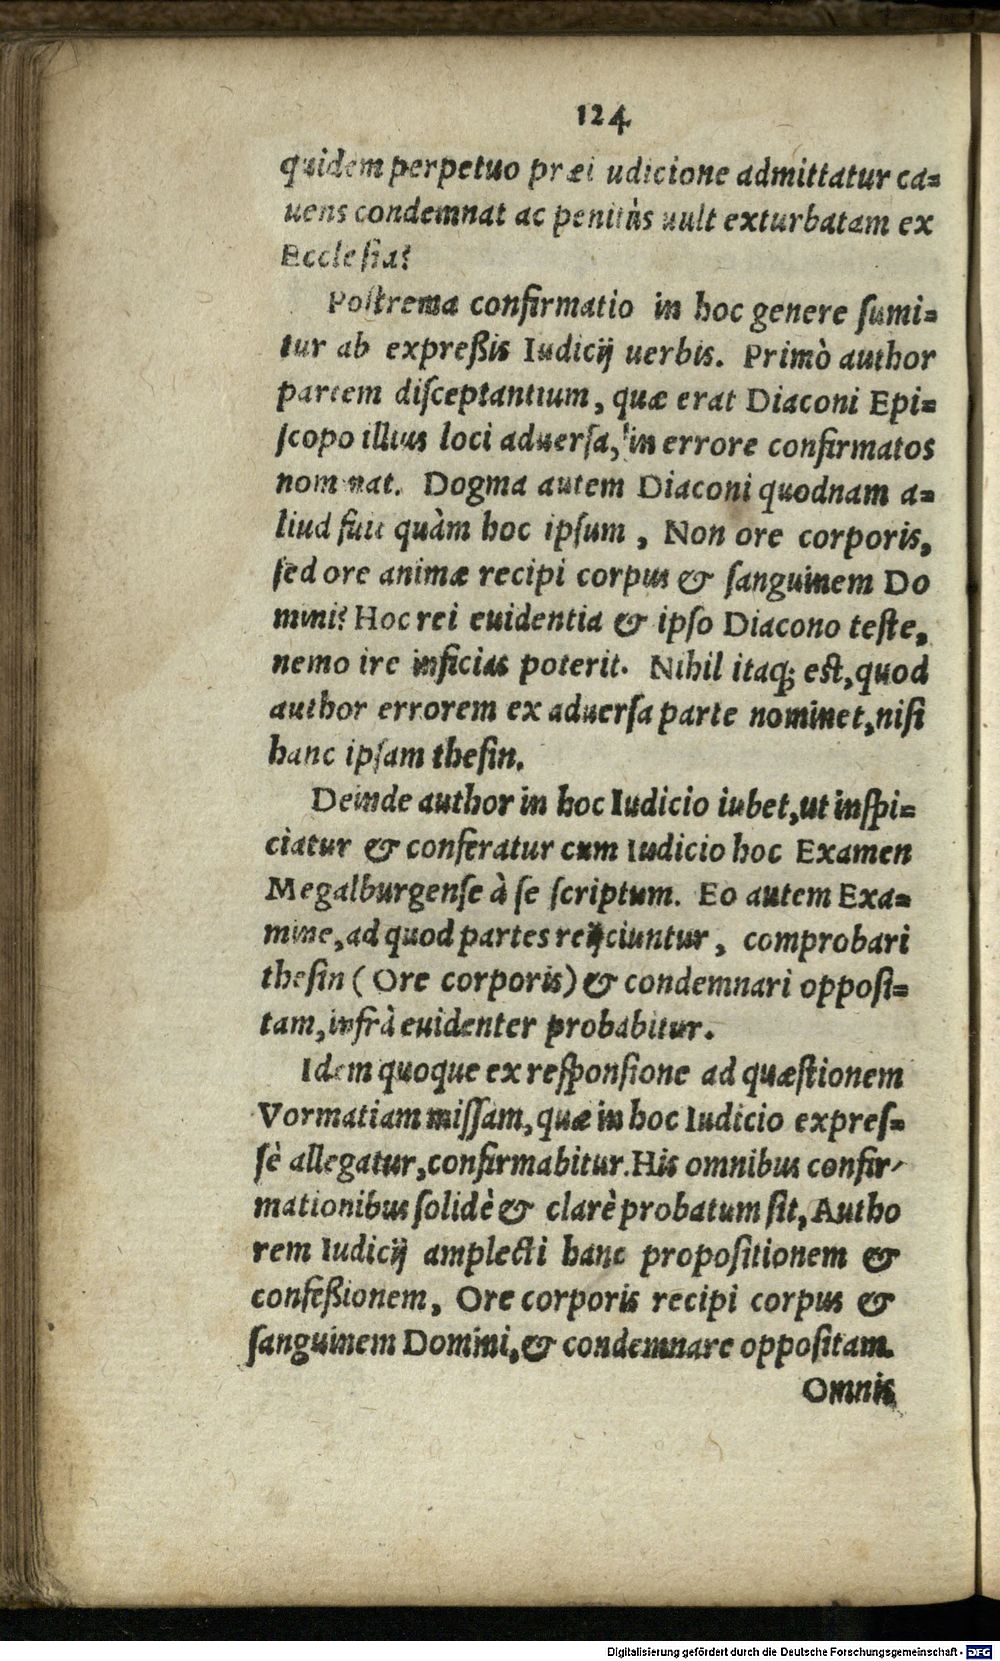 124
quidem perpetuo præi udicione admittatur ca=
uens condemnat ac penitùs uult exturbatam ex
Ecclesia?
Postrema confirmatio in hoc genere sumi=
tur ab expreßis Iudicij uerbis. Primò author
partem disceptantium, quæ erat Diaconi Epi=
scopo illius loci aduersa, in errore confirmatos
nominat. Dogma autem Diaconi quodnam a=
liud fuit quàm hoc ipsum , Non ore corporis,
sed ore animæ recipi corpus & sanguinem Do
mini? Hoc rei euidentia & ipso Diacono teste,
nemo ire inficias poterit. Nihil itaq; est, quod
author errorem ex aduersa parte nominet, nisi
hanc ipsam thesin.
Deinde author in hoc Iudicio iubet, ut inspi=
ciatur & conferatur cum Iudicio hoc Examen
Megalburgense à se scriptum. Eo autem Exa=
mine, ad quod partes reijciuntur , comprobari
thesin ( Ore corporis) & condemnari opposi=
tam, infrà euidenter probabitur.
Idem quoque ex responsione ad quæstionem
Vormatiam missam, quæ in hoc Iudicio expres=
sè allegatur, confirmabitur. His omnibus confir-
mationibus solidè & clarè probatum sit, Autho
rem Iudicij amplecti hanc propositionem &
confeßionem, Ore corporis recipi corpus &
sanguinem Domini, & condemnare oppositam.
Omnis
Digitalisierung gefördert durch die Deutsche Forschungsgemeinschaft - DFG